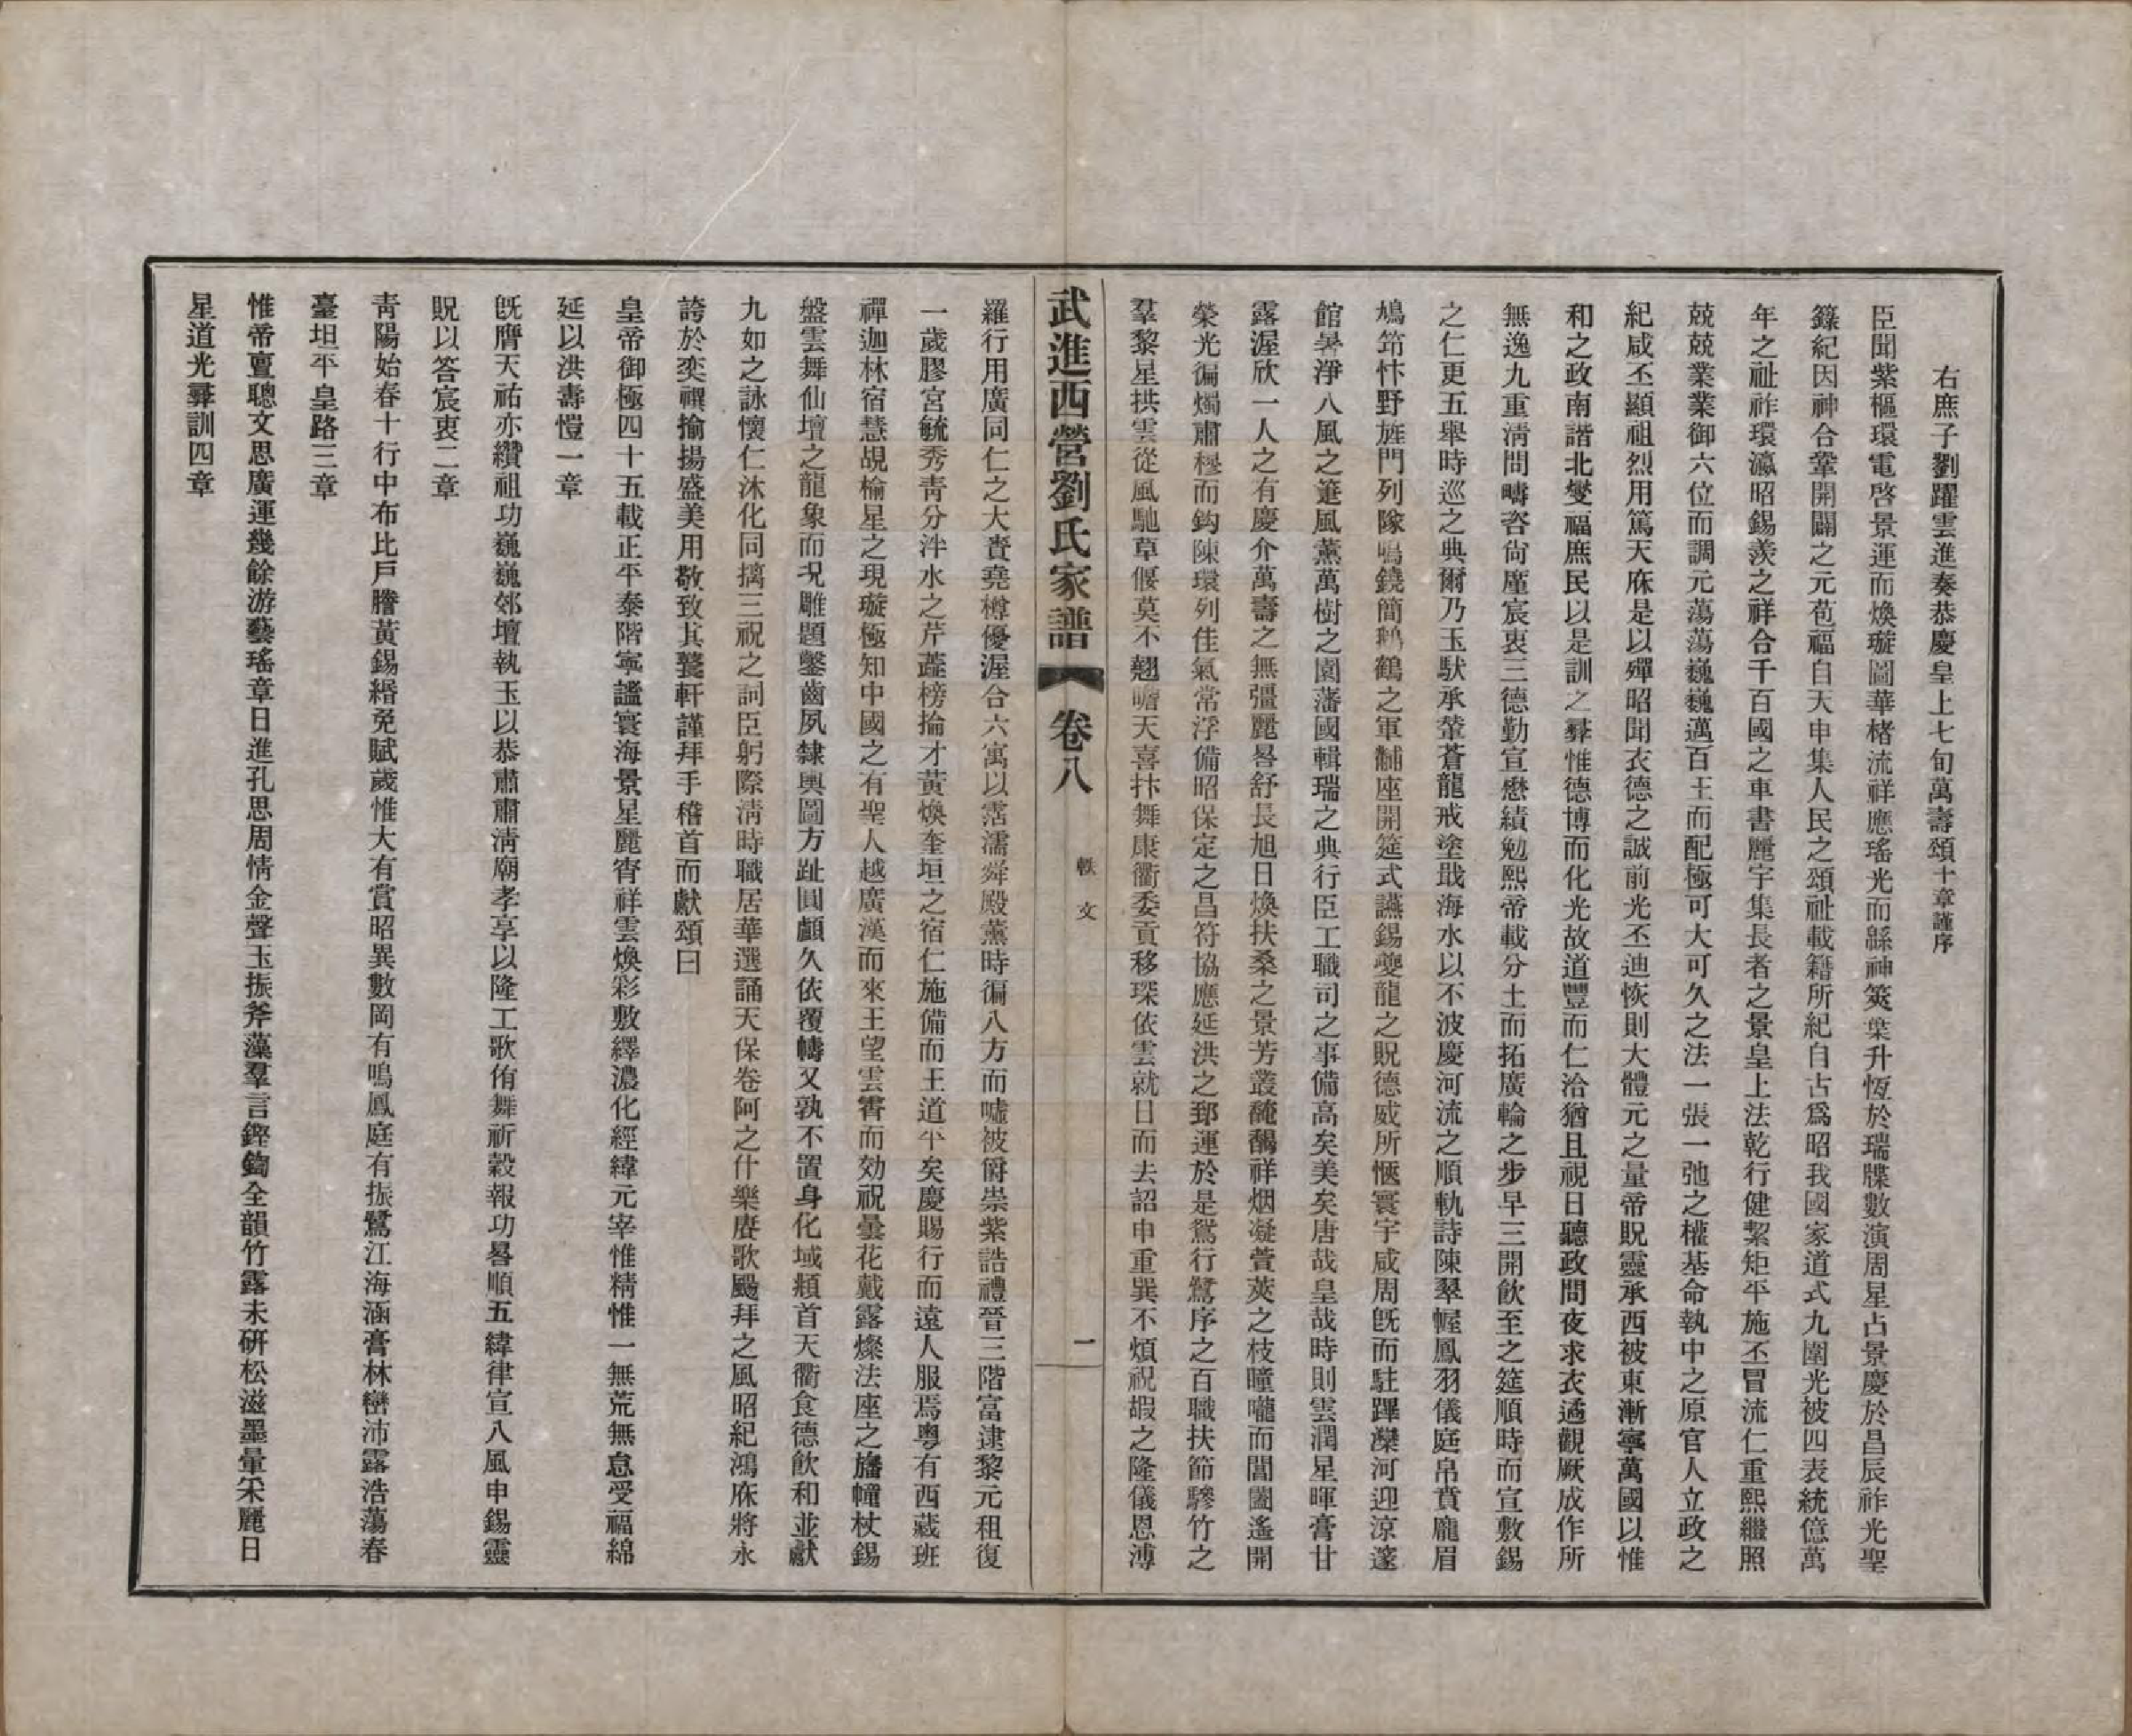 右庶子劉躍雲進奏恭慶皇上七旬萬壽頌十章謹序
臣聞紫樞環電啓景運而煥璇圖華楮流祥應瑤光而緜神筴葉升恆於瑞牒數演周星占景慶於昌辰祚光聖
籙紀因神合肇開闢之元苞福自天申集人民之頌祉載籍所紀自古爲昭我國家道式九圍光被四表統億萬
年之祉祚環瀛昭錫羨之祥合千百國之車書麗宇集長者之景皇上法乾行健絜矩平施丕冒流仁重熙繼照
兢兢業業御六位而調元蕩蕩巍巍邁百王而配極可大可久之法一張一弛之權基命執中之原官人立政之
紀咸丕顯祖烈用篤天庥是以殫昭聞衣德之誠前光丕迪恢則大體元之量帝貺靈承西被東漸寧萬國以惟
和之政南諧北燮福庶民以是訓之彝惟德博而化光故道豐而仁洽猶且視日聽政問夜求衣遹觀厥成作所
無逸九重淸問疇咨尙廑宸衷三德勤宣懋績勉熙帝載分土而拓廣輪之步早三開飮至之筵順時而宣敷錫
之仁更五舉時巡之典爾乃玉馱承輦蒼龍戒塗戢海水以不波慶河流之順軌詩陳翠幄鳳羽儀庭帛賁龐眉
鳩笻忭野旌門列隊鳴鐃簡鸛鶴之軍黼座開筵式讌錫夔龍之貺德威所愜寰宇咸周旣而駐蹕灤河迎涼邃
館暑淨八風之箑風薰萬樹之園藩國輯瑞之典行臣工職司之事備高矣美矣唐哉皇哉時則雲潤星暉膏甘
露渥欣一人之有慶介萬壽之無彊麗晷舒長旭日煥扶桑之景芳叢馣馤祥烟凝蓂莢之枝曈曨而閶闔遙開
榮光徧燭肅穆而鈎陳環列佳氣常浮備昭保定之昌符協應延洪之郅運於是鴛行鷺序之百職扶節驂竹之
羣黎星拱雲從風馳草偃莫不翹瞻天喜抃舞康衢委貢移琛依雲就日而去詔申重巽不煩祝嘏之隆儀恩溥
武進西營劉氏家譜 卷八 軼文 一
羅行用廣同仁之大賚堯樽優渥合六寓以霑濡舜殿薰時徧八方而噓被爵崇紫誥禮晉三階富逮黎元租復
一歲膠宮毓秀靑分泮水之芹蘂榜掄才黃煥奎垣之宿仁施備而王道平矣慶賜行而遠人服焉粵有西藏班
禪迦林宿慧覘楡星之現璇極知中國之有聖人越廣漢而來王望雲霄而効祝曇花戴露燦法座之旛幢杖錫
盤雲舞仙壇之龍象而況雕題鑿齒夙隸輿圖方趾圓顱久依覆幬又孰不置身化域頫首天衢食德飮和並獻
九如之詠懷仁沐化同摛三祝之詞臣躬際淸時職居華選誦天保卷阿之什樂賡歌颺拜之風昭紀鴻庥將永
誇於奕禩揄揚盛美用敬致其籛軒謹拜手稽首而獻頌曰
皇帝御極四十五載正平泰階寧謐寰海景星麗霄祥雲煥彩敷繹濃化經緯元宰惟精惟一無荒無怠受福綿
延以洪壽愷一章
旣膺天祐亦纘祖功巍巍郊壇執玉以恭肅肅淸廟孝享以隆工歌侑舞祈穀報功晷順五緯律宣八風申錫靈
貺以答宸衷二章
靑陽始春十行中布比戶謄黃錫緡免賦歲惟大有賞昭異數岡有鳴鳳庭有振鷺江海涵膏林巒沛露浩蕩春
臺坦平皇路三章
惟帝亶聰文思廣運幾餘游藝瑤章日進孔思周情金聲玉振斧藻羣言鏗鍧全韻竹露未硏松滋墨暈宷麗日
星道光彝訓四章